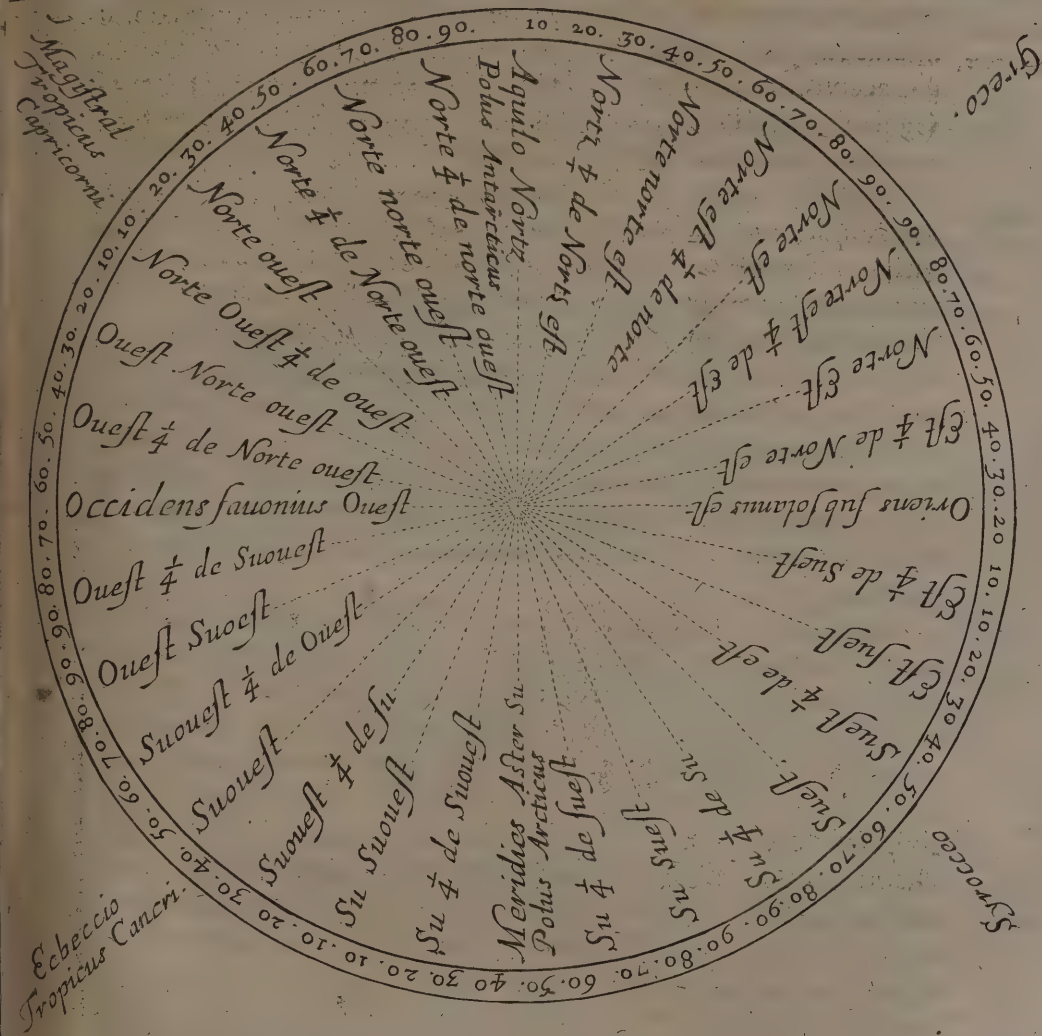 Magistral
Tropicus
Capricorni
Greco.
Syrocceo
Ecbeccio
Tropicus Cancri.
10. 20. 30. 40. 50. 60. 70. 80. 90. 90. 80. 70. 60. 50. 40. 30. 20 10. 10. 20. 30 40. 50. 60. 70. 80. 90. 90. 80. 70. 60. 50. 40 30. 20. 10. 10. 20 30. 40. 50. 60. 70. 80. 90. 90. 80. 70. 60. 50. 40. 30. 20. 10. 10. 20. 30. 40. 50. 60. 70. 80. 90.
Aquilo Norte
Norte 1/4 de Norte eſt
Norte norte eſt
Norte eſt 1/4 de norte
Norte eſt
Norte eſt 1/4 de Eſt
Norte Eſt
Eſt 1/4 de Norte eſt
Oriens ſubſolanus eſt
Eſt 1/4 de Sueſt
Eſt ſueſt
Sueſt 1/4 de eſt
Sueſt.
Su 1/4 de Su
Su Sueſt
Su 1/4 de ſenſeſt
Polus Arcticus
Meridies Aster Su
Su 1/4 de Suoueſt
Su Suoueſt
Suoueſt 1/4 de ſu
Suoueſt
Suoueſt 1/4 de Oueſt
Oueſt Suoeſt
Oueſt 1/4 de Suoueſt
Occidens fauonius Oueſt
Oueſt 1/4 de Norte oueſt
Oueſt Norte oueſt
Norte Oueſt 1/4 de oueſt
Norte oueſt
Norte 1/4 de Norte oueſt
Norte norte oueſt
Norte 1/4 de norte oueſt
Polus Antarcticus